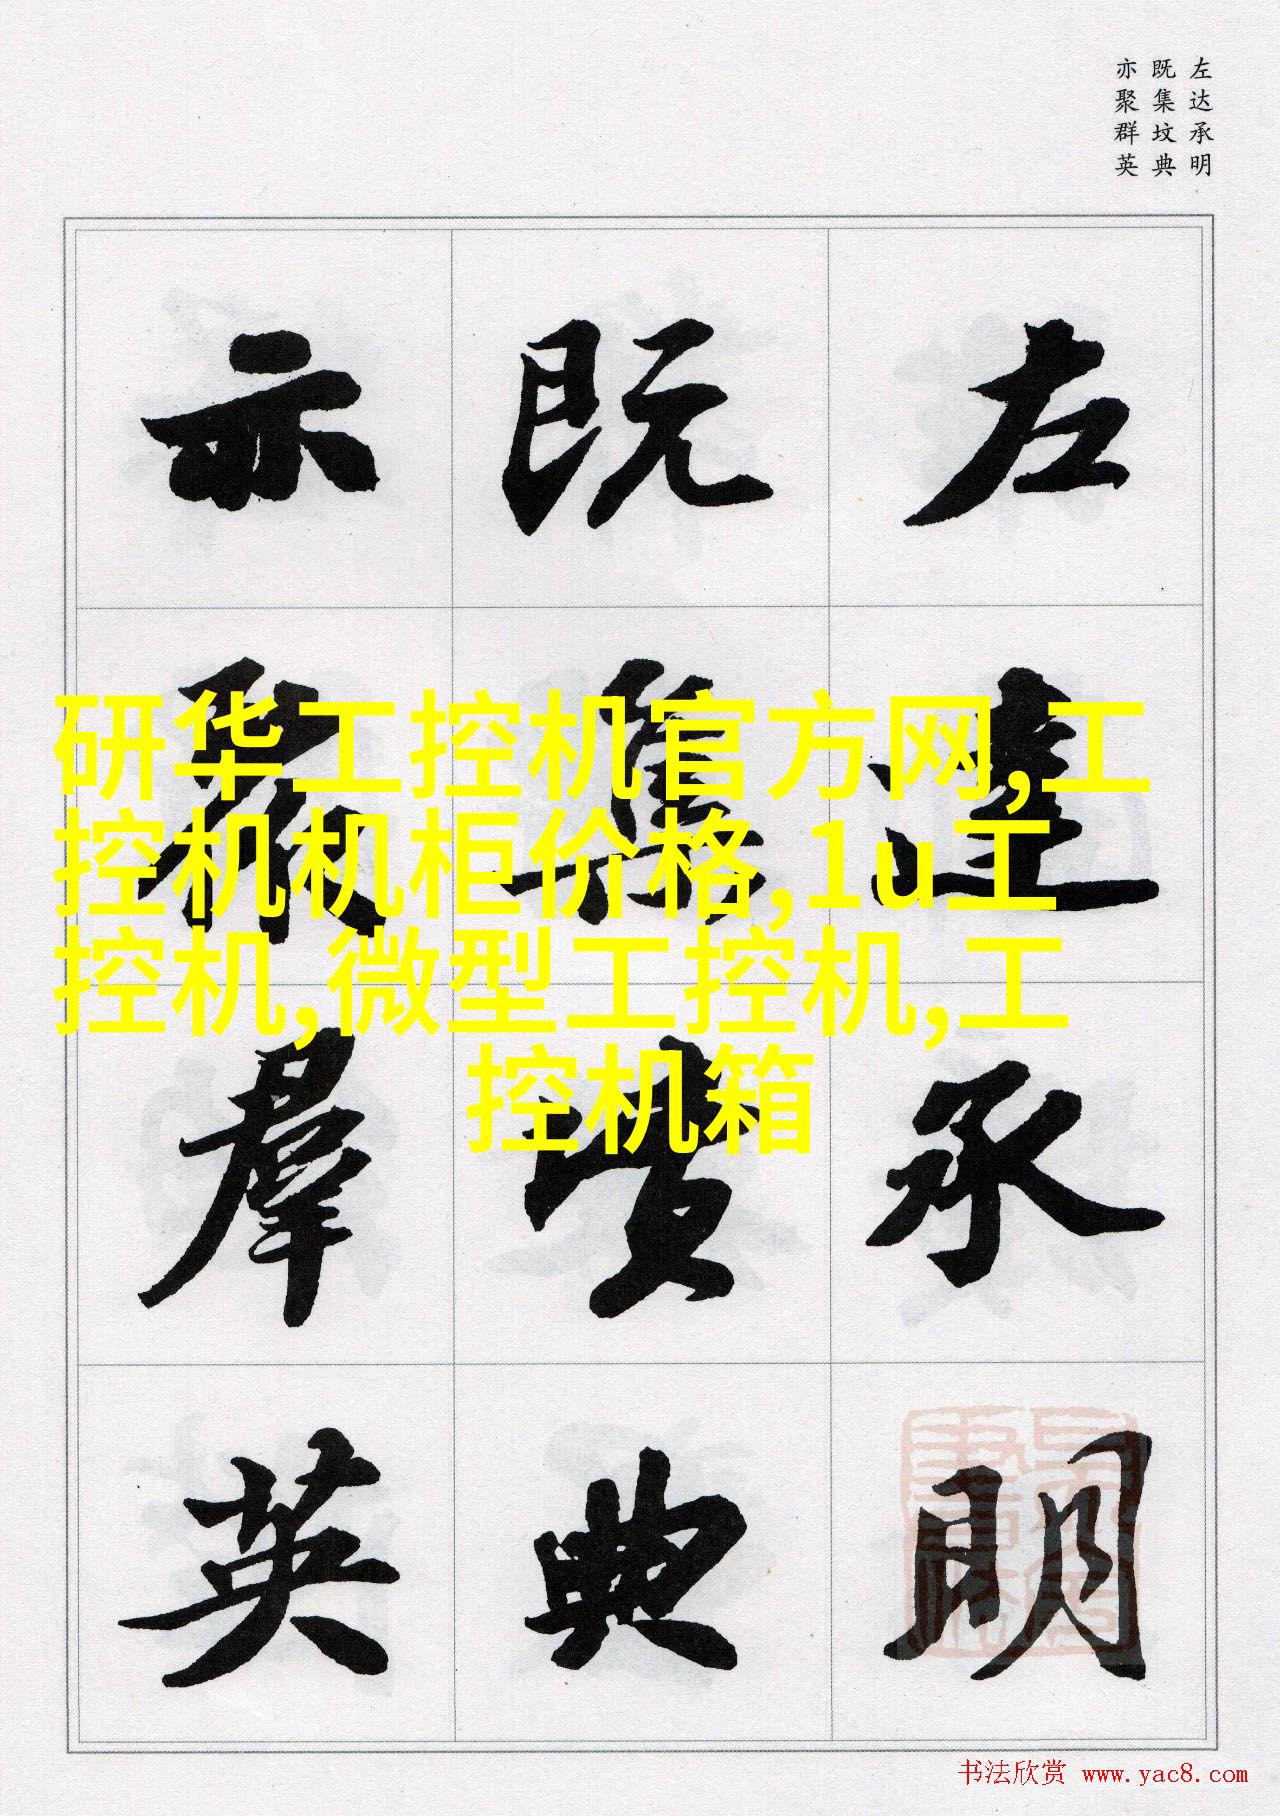 左达承明
既集坟典
亦聚群英
左達承明
既集墳典
亦聚羣英
研华工控机官方网,工
控机机柜价格,1u工
控机,微型工控机,工
控机箱
书法欣赏 www.yac8.com